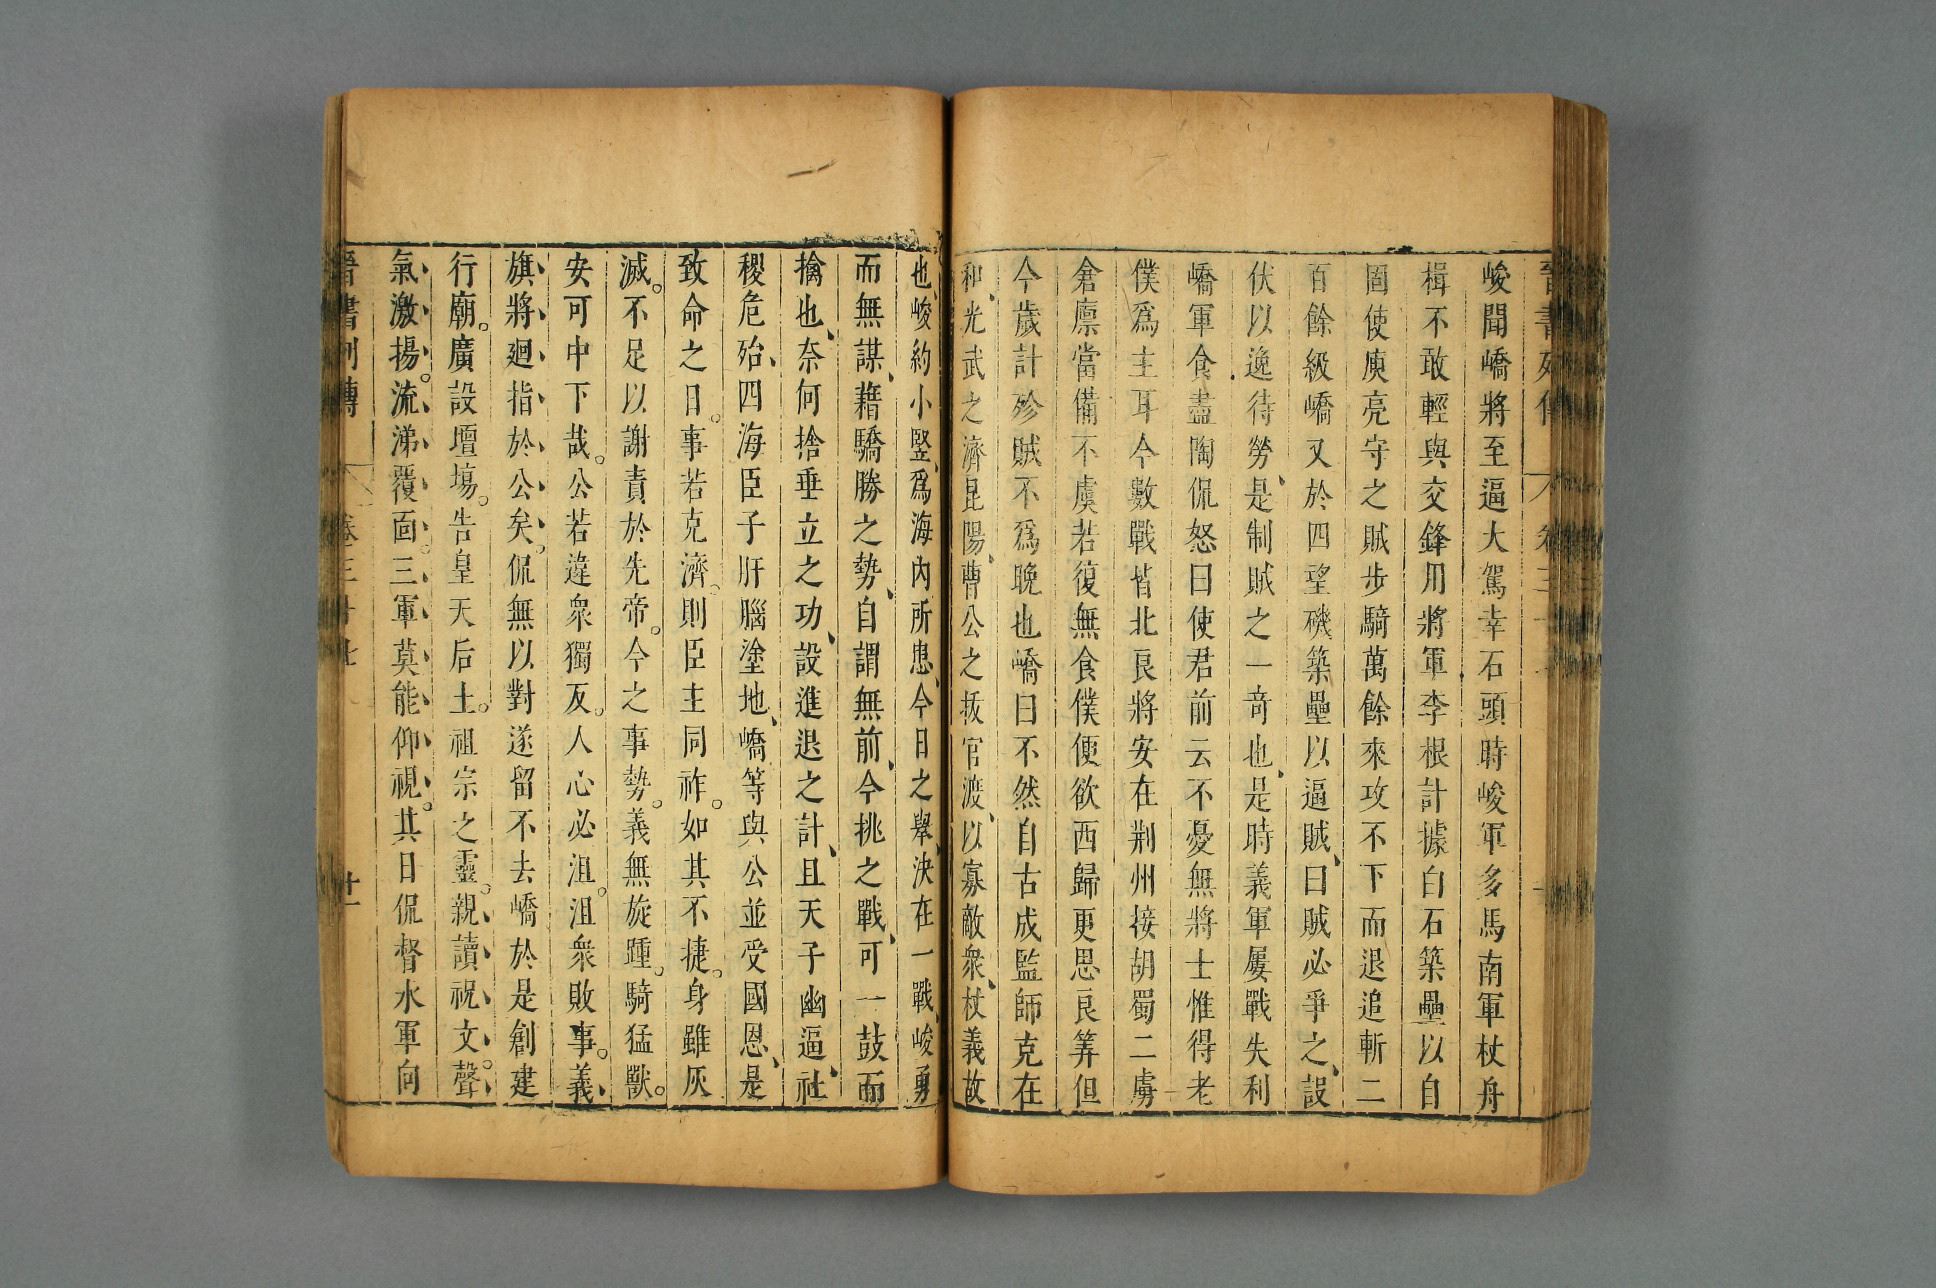 峻聞嶠將至逼大駕幸石頭時峻軍多馬南軍杖舟
楫不敢輕與交鋒用將軍李根計據白石築壘以自
固使庾亮守之賊步騎萬餘來攻不下而退追斬二
百餘級嶠又於四望磯築壘以逼賊曰賊必爭之設
伏以逸待勞是制賊之一奇也是時義軍屢戰失利
嶠軍食盡陶侃怒曰使君前云不憂無將士惟得老
僕爲主耳今數戰皆北良將安在荆州接胡蜀二虜
倉廪當備不虞若復無食僕便欲西歸更思良筭但
今歲計殄賊不爲晚也嶠曰不然自古成監師克在
和光武之濟昆陽曹公之拔官渡以寡敵衆杖義故
也峻約小竪爲海內所患今日之舉決在一戰峻勇
而無謀藉驕勝之勢自謂無前今挑之戰可一鼓而
擒也奈何捨垂立之功設進退之計且天子幽逼社
稷危殆四海臣子肝腦塗地嶠等與公並受國恩是
致命之日。事若克濟。則臣主同祚。如其不捷。身雖灰
滅。不足以謝責於先帝。今之事勢。義無旋踵。騎猛獸。
安可中下哉。公若違衆獨反。人心必沮。沮衆敗事。義
旗將廻指於公矣。侃無以對遂留不去嶠於是創建
行廟。廣設壇塲。告皇天后土。祖宗之靈。親讀祝文。聲
氣激揚。流涕覆面。三軍莫能仰視。其日侃督水軍向
晉書列傳 卷三十七 十一